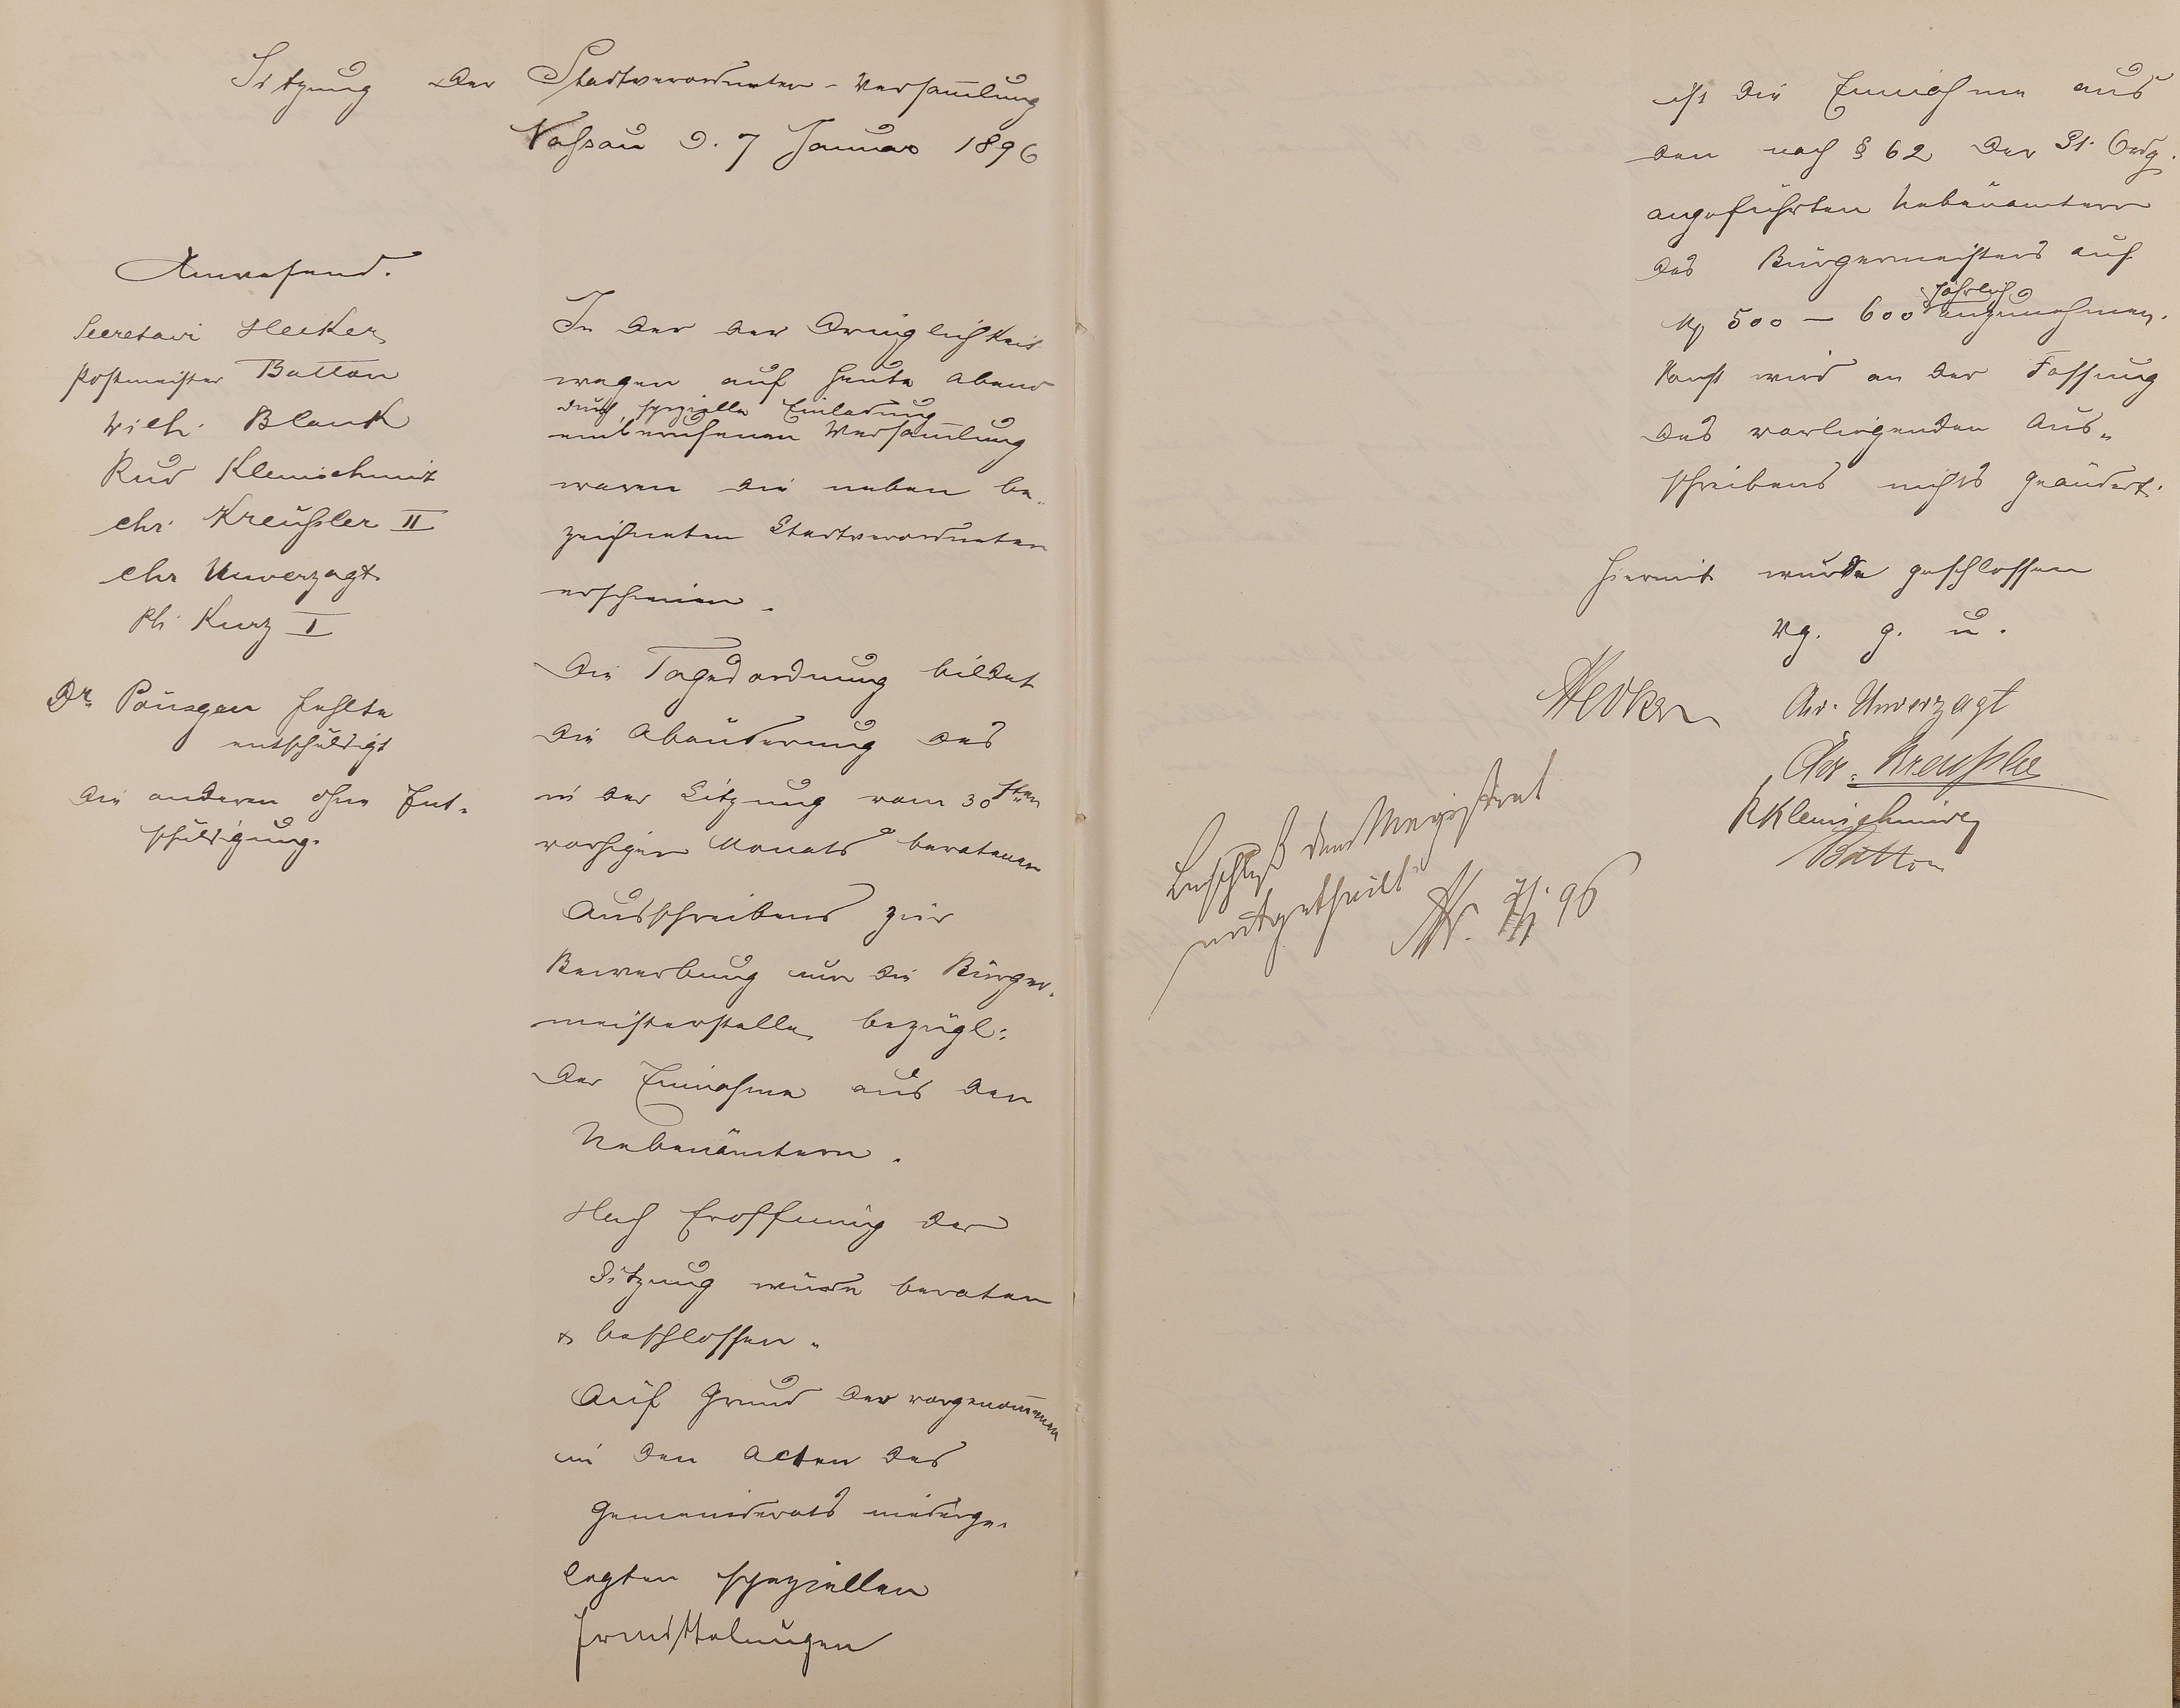 Sitzung der Stadtverordneten-Versam̅lung
Nassau d. 7 Januar 1896
Anwesend.
Secretair Hecker
Postmeister Batton
Wilh. Blank
Rud Kleinschmit
Chr. Kreußler II
Chr Unverzagt
Ph. Kurz I
Dr. Pönsgen fehlte
entschuldigt
die anderen ohne Ent-
schuldigung.
In der der Dringlichkeit
wegen auf heute Abend
durch spezielle Einladung
einberufenen Versam̅lung
waren die neben be-
zeichneten Stadtverordneten
erschienen.
Die Tagesordnung bildet
die Abänderung des
in der Sitzung vom 30sten
vorhigen Monats beratenen
Ausschreibens zur
Bewerbung um die Bürger-
meisterstelle bezügl:
der Einnahme aus den
Nebenämtern.
Nach Eröffnung der
Sitzung wurde beraten
& beschlossen.
Auf Grund der vorgenom̅enen
in den Acten des
Gemeinderats niederge-
legten speziellen
Ermittelungen
ist die Einnahme aus
den nach § 62 der St. Ordg.
angeführten Nebenämtern
des Bürgermeisters auf
M 500 — 600 jährlich anzunehmen.
Sonst wird an der Fassung
des vorliegenden Aus-
schreibens nichts geändert.
Hiermit wurde geschlossen
Vg. g. u.
Hecker
Chr. Unverzagt
Chr. Kreußler
R Kleinschmidt
Batton
Beschluß dem Magistrat
mitgetheilt
96